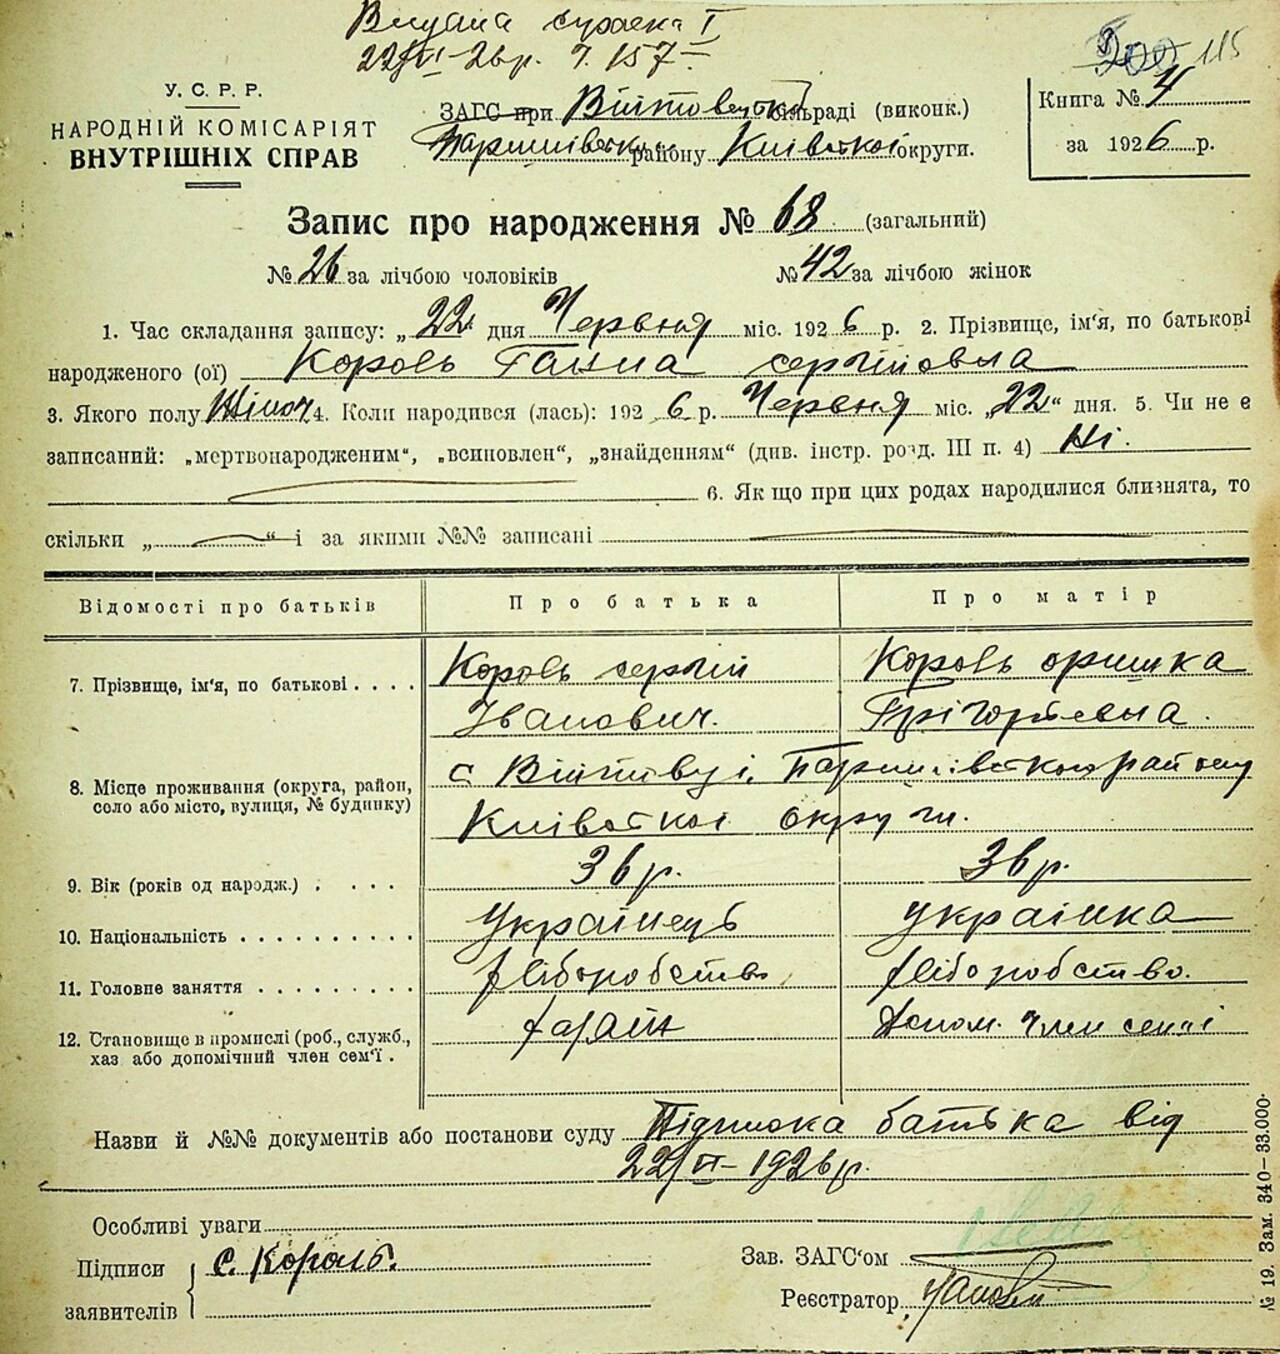 Видана справка I
22/VI-26р. Ч. 157-
200 115
У. С. Р. Р.
НАРОДНІЙ КОМІСАРІЯТ
ВНУТРІШНІХ СПРАВ
ЗАГС при Війтовецькій сільраді (виконк.)
району Київської округи.
Книга № 4
за 1926 р.
Запис про народження № 68 (загальний)
№ 26 за лічбою чоловіків № 42 за лічбою жінок
1. Час складання запису: „22" дня Червня міс. 1926 р. 2. Прізвище, ім'я, по батькові
народженого (ої) Король Ганна сергіїовна
3. Якого полу Жіноч. 4. Коли народився (лась): 1926 р. Червня міс. „22" дня. 5. Чи не є
записаний: „мертвонародженим", „всиновлен", „знайденням" (див. інстр. розд. III п. 4) Ні.
6. Як що при цих родах народилися близнята, то
скільки „ " і за якими №№ записані
Відомості про батьків Про батька Про матір
7. Прізвище, ім'я, по батькові . . . . Король сергій Король оришка
Іванович. Григорьевна.
8. Місце проживання (округа, район,
село або місто, вулиця, № будинку)
с. Війтівці, району
Київської округи.
9. Вік (років од народж.) . . . . 36 р. 36 р.
10. Національність . . . . . . . . . . Українець українка
11. Головне заняття . . . . . . . . . хліборобство хліборобство.
12. Становище в промислі (роб., служб., хазяїн Допом. член семі
хаз. або допомічний член сем'ї .
Назви й №№ документів або постанови суду Підписка батька від
22/VI-1926р.
Особливі уваги
Підписи
заявителів
С. Король.
Зав. ЗАГС'ом
Реєстратор
№ 19. Зам. 340—33.000.